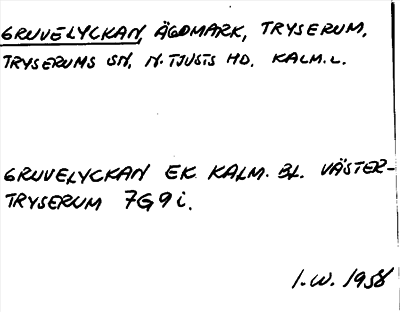 GRUVELYCKAN, ÄGOMARK, TRYSERUM,
TRYSERUMS SN, N. TJUSTS HD, KALM. L.
GRUVELYCKAN EK KALM. BL. VÄSTER-
TRYSERUM 7G9i.
I.W. 1958